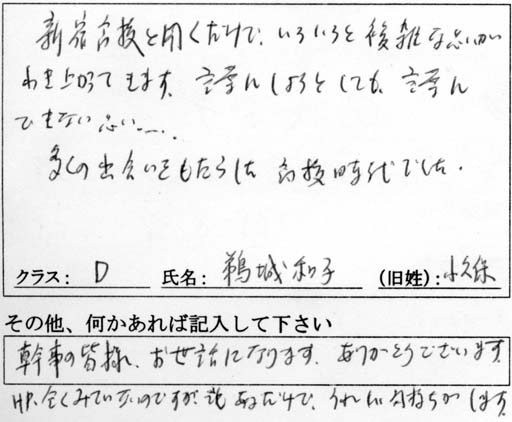 新宿高校と聞くだけで、いろいろと複雑な思いが
わき上がってきます。言葉にしようとしても、言葉に
できない思い……。
多くの出会いをもたらした高校時代でした。
クラス： D 氏名： 鵜城和子 (旧姓)：小久保
その他、何かあれば記入して下さい
幹事の皆様、お世話になります。ありがとうございます。
HP、全くみていないのですが 見るだけで、うれしい気持ちがします。